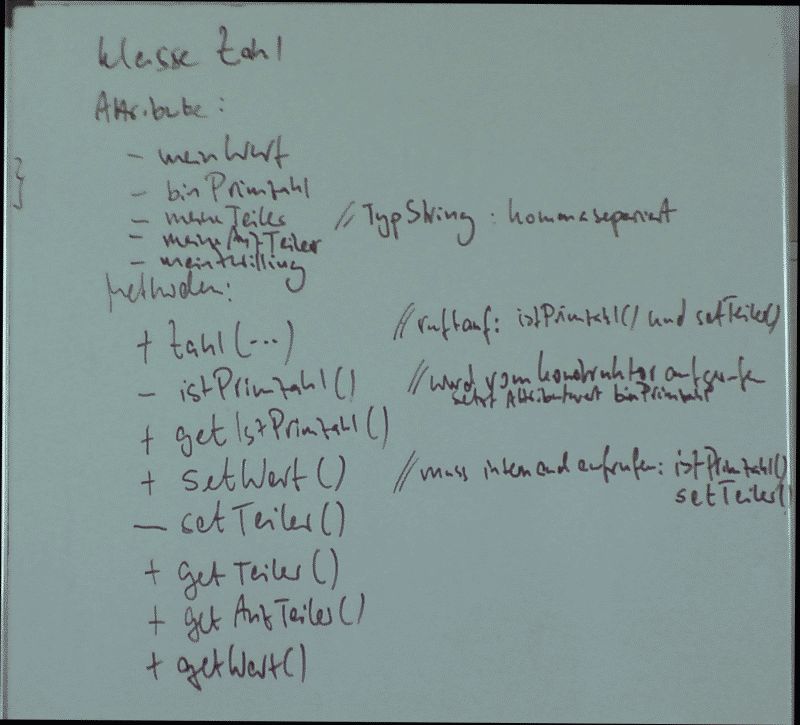 Klasse Zahl
Attribute:
- meinWert
- binPrimzahl
- meineTeiler // Typ String : kommasepariert
- meineAnzTeiler
- meinZwilling
Methoden:
+ Zahl(...) // ruft auf: istPrimzahl() und setTeiler()
- istPrimzahl() // wird vom Konstruktor aufgerufen
setzt Attributwert binPrimzahl
+ getIstPrimzahl()
+ setWert() // muss intern auch aufrufen: istPrimzahl()
setTeiler()
- setTeiler()
+ getTeiler()
+ getAnzTeiler()
+ getWert()